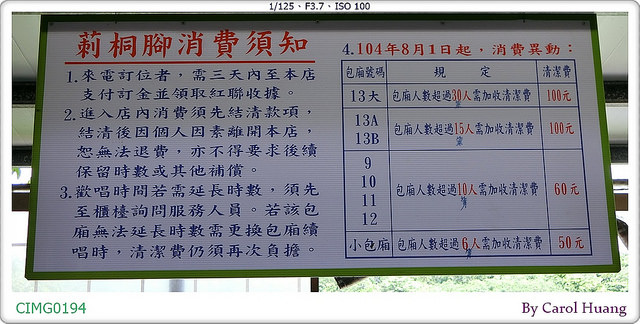 1/125、F3.7、ISO 100
莿桐腳消費須知
1.來電訂位者，需三天內至本店
支付訂金並領取紅聯收據。
2.進入店內消費須先結清款項，
結清後因個人因素離開本店，
恕無法退費，亦不得要求後續
保留時數或其他補償。
3.歡唱時間若需延長時數，須先
至櫃檯詢問服務人員。若該包
廂無法延長時數需更換包廂續
唱時，清潔費仍須再次負擔。
4.104年8月1日起，消費異動：
包廂號碼 規定 清潔費
13大 包廂人數超過30人需加收清潔費 100元
13A
13B 包廂人數超過15人需加收清潔費 100元
9
10
11
12 包廂人數超過10人需加收清潔費 60元
小包廂 包廂人數超過6人需加收清潔費 50元
CIMG0194
By Carol Huang